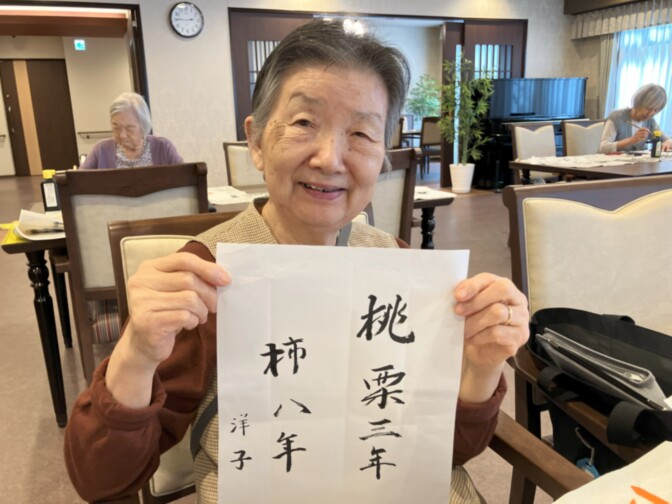 桃栗三年
柿八年
洋子